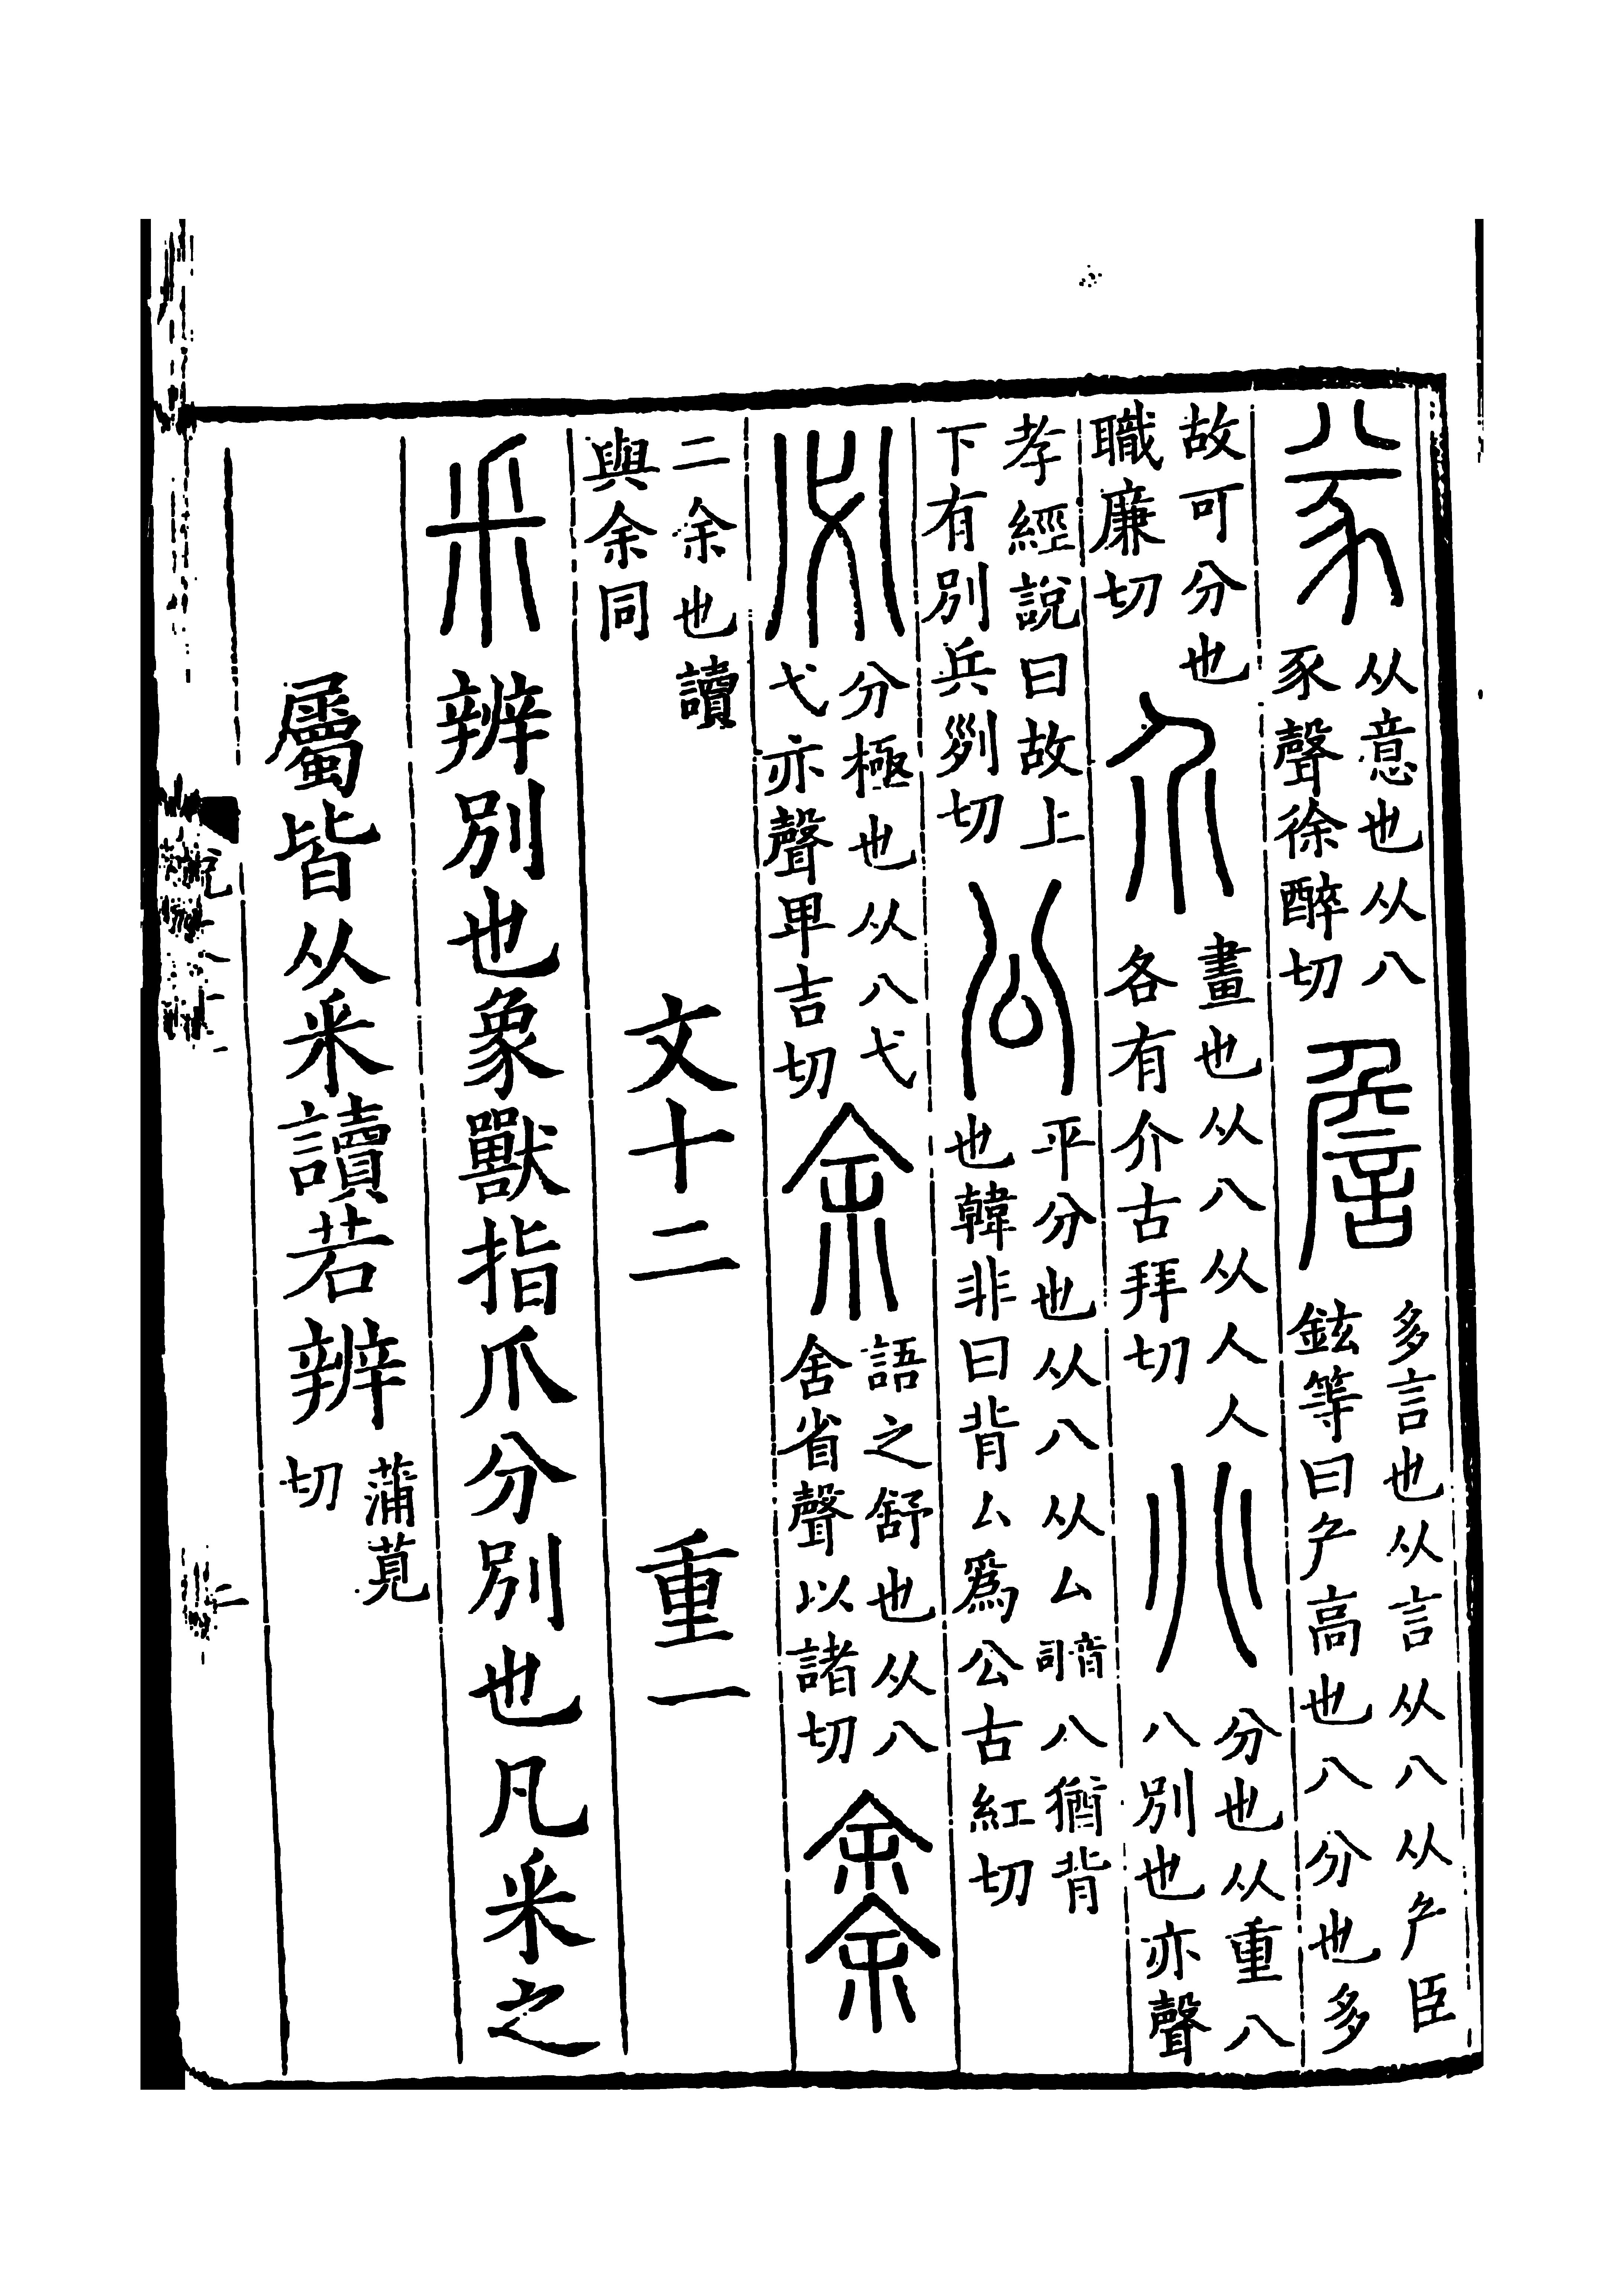 㒸从意也从八豕聲徐醉切詹多言也从言从八从厃臣鉉等曰厃高也八分也多
故可分也職廉切介畫也从八从人人各有介古拜切𠔁分也从重八八別也亦聲
孝經說曰故上下有別兵𠛱切公平分也从八从厶音司八猶背也韓非曰背厶爲公古紅切
必分極也从八弋弋亦聲卑吉切余語之舒也从八舍省聲以諸切𠎳
二余也讀與余同　文十二　重一
釆辨別也象獸指爪分別也凡釆之
屬皆从釆讀若辨蒲莧切